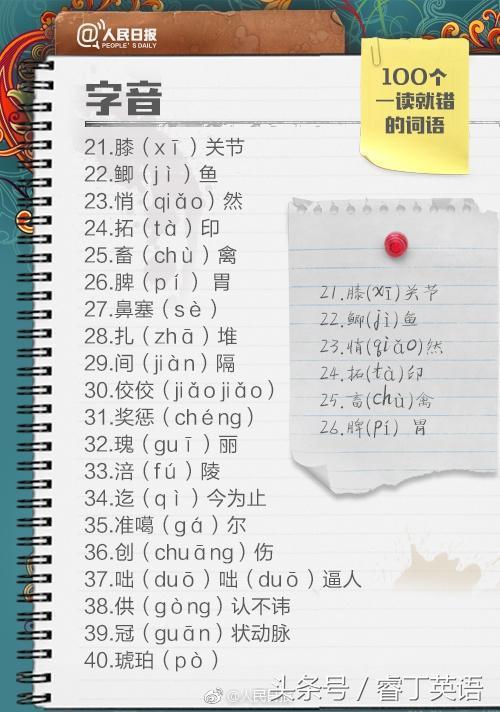 @人民日报
PEOPLE'S DAILY
100个
一读就错
的词语
字音
21.膝（xī）关节
22.鲫（jì）鱼
23.悄（qiǎo）然
24.拓（tà）印
25.畜（chù）禽
26.脾（pí）胃
27.鼻塞（sè）
28.扎（zhā）堆
29.间（jiàn）隔
30.佼佼（jiǎojiǎo）
31.奖惩（chéng）
32.瑰（guī）丽
33.涪（fú）陵
34.迄（qì）今为止
35.准噶（gá）尔
36.创（chuāng）伤
37.咄（duō）咄（duō）逼人
38.供（gòng）认不讳
39.冠（guān）状动脉
40.琥珀（pò）
21.膝(xī)关节
22.鲫(jì)鱼
23.悄(qiǎo)然
24.拓(tà)印
25.畜(chù)禽
26.脾(pí) 胃
@人民日报
头条号/睿丁英语